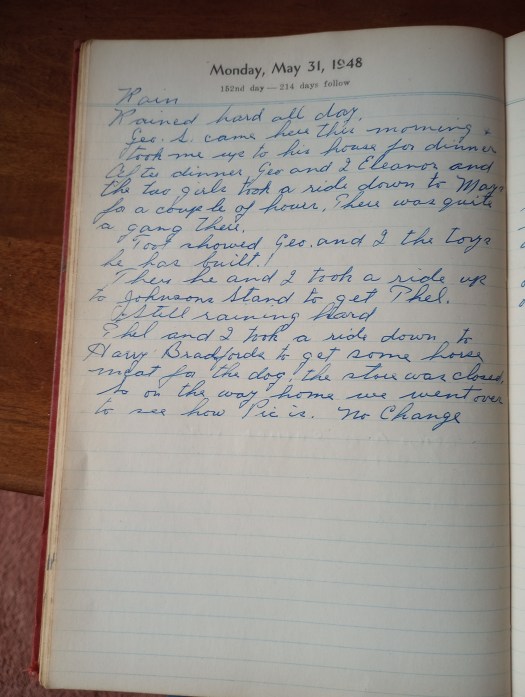 Monday, May 31, 1948
152nd day — 214 days follow
Rain
Rained hard all day.
Geo. S. came here this morning &
took me up to his house for dinner
After dinner, Geo and I Eleanor and
the two girls took a ride down to Mays
for a couple of hours. There was quite
a gang there.
Toot showed Geo. and I the toys
he has built.
Then he and I took a ride up
to Johnsons Stand to get Phel.
Still raining hard
Phel and I took a ride down to
Harry Bradfords to get some horse
meat for the dog, the store was closed,
So on the way home we went over
to see how Pic is. No Change